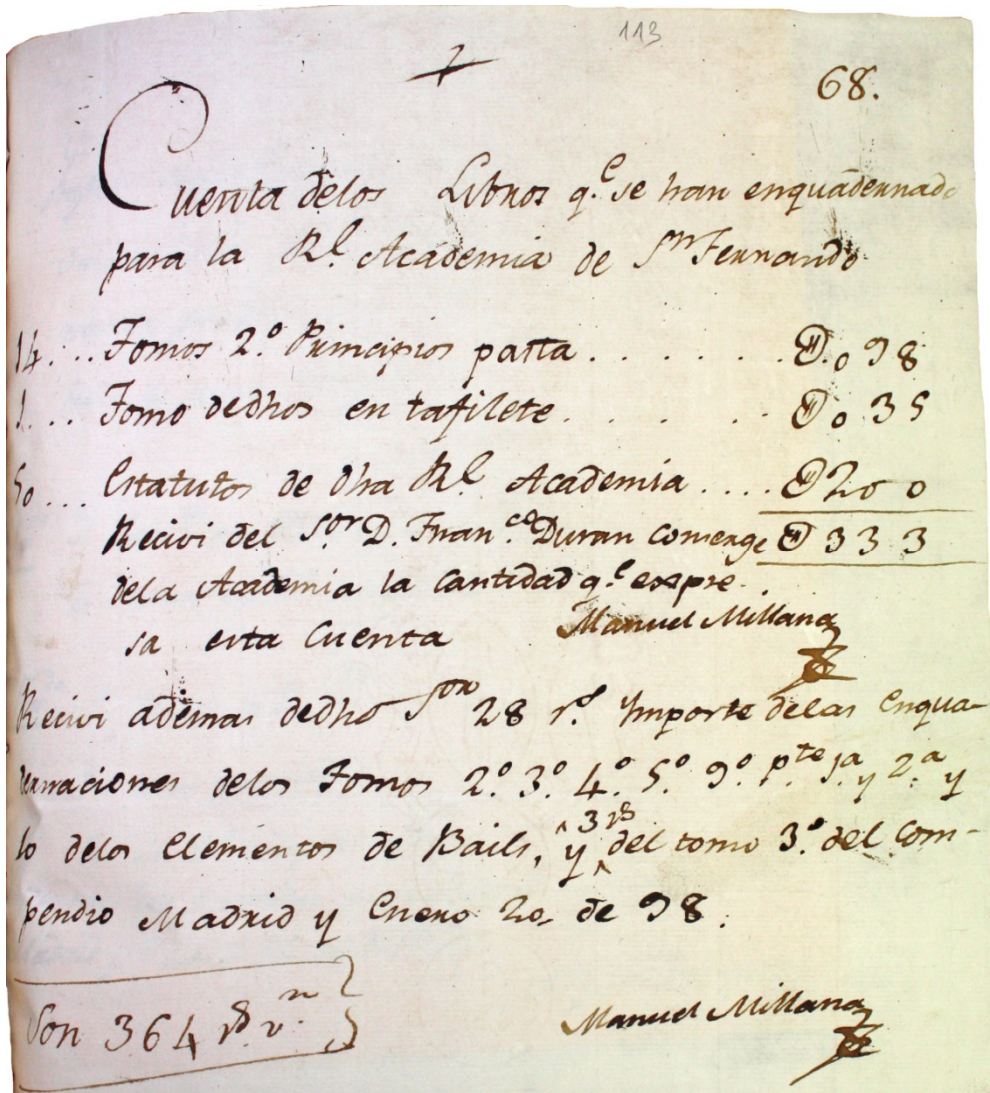 113
68.
Cuenta delos Libros q.e se han enquadernado
para la Rl. Academia de Sn Fernando
14... Tomos 2.º Principios pasta . . . . . . . D.o 98
1... Tomo dedhos en tafilete . . . . . D o 35
50... Estatutos de dha Rl Academia .... D200
Recivi del Sor D. Fran.co Duran Conserge D 333
dela Academia la Cantidad q.e expre-
sa esta Cuenta Manuel Millana
Recivi ademas dedho Sor 28 rs. Ymporte delas Enqua-
dernaciones delos Tomos 2.º 3.º 4.º 5.º 9.º pte 1a y 2.a y
10 delos Elementos de Bails, y 3 rs del tomo 3.º del Com-
pendio Madrid y Enero 20, de 98.
Son 364 rs. v.n
Manuel Millana